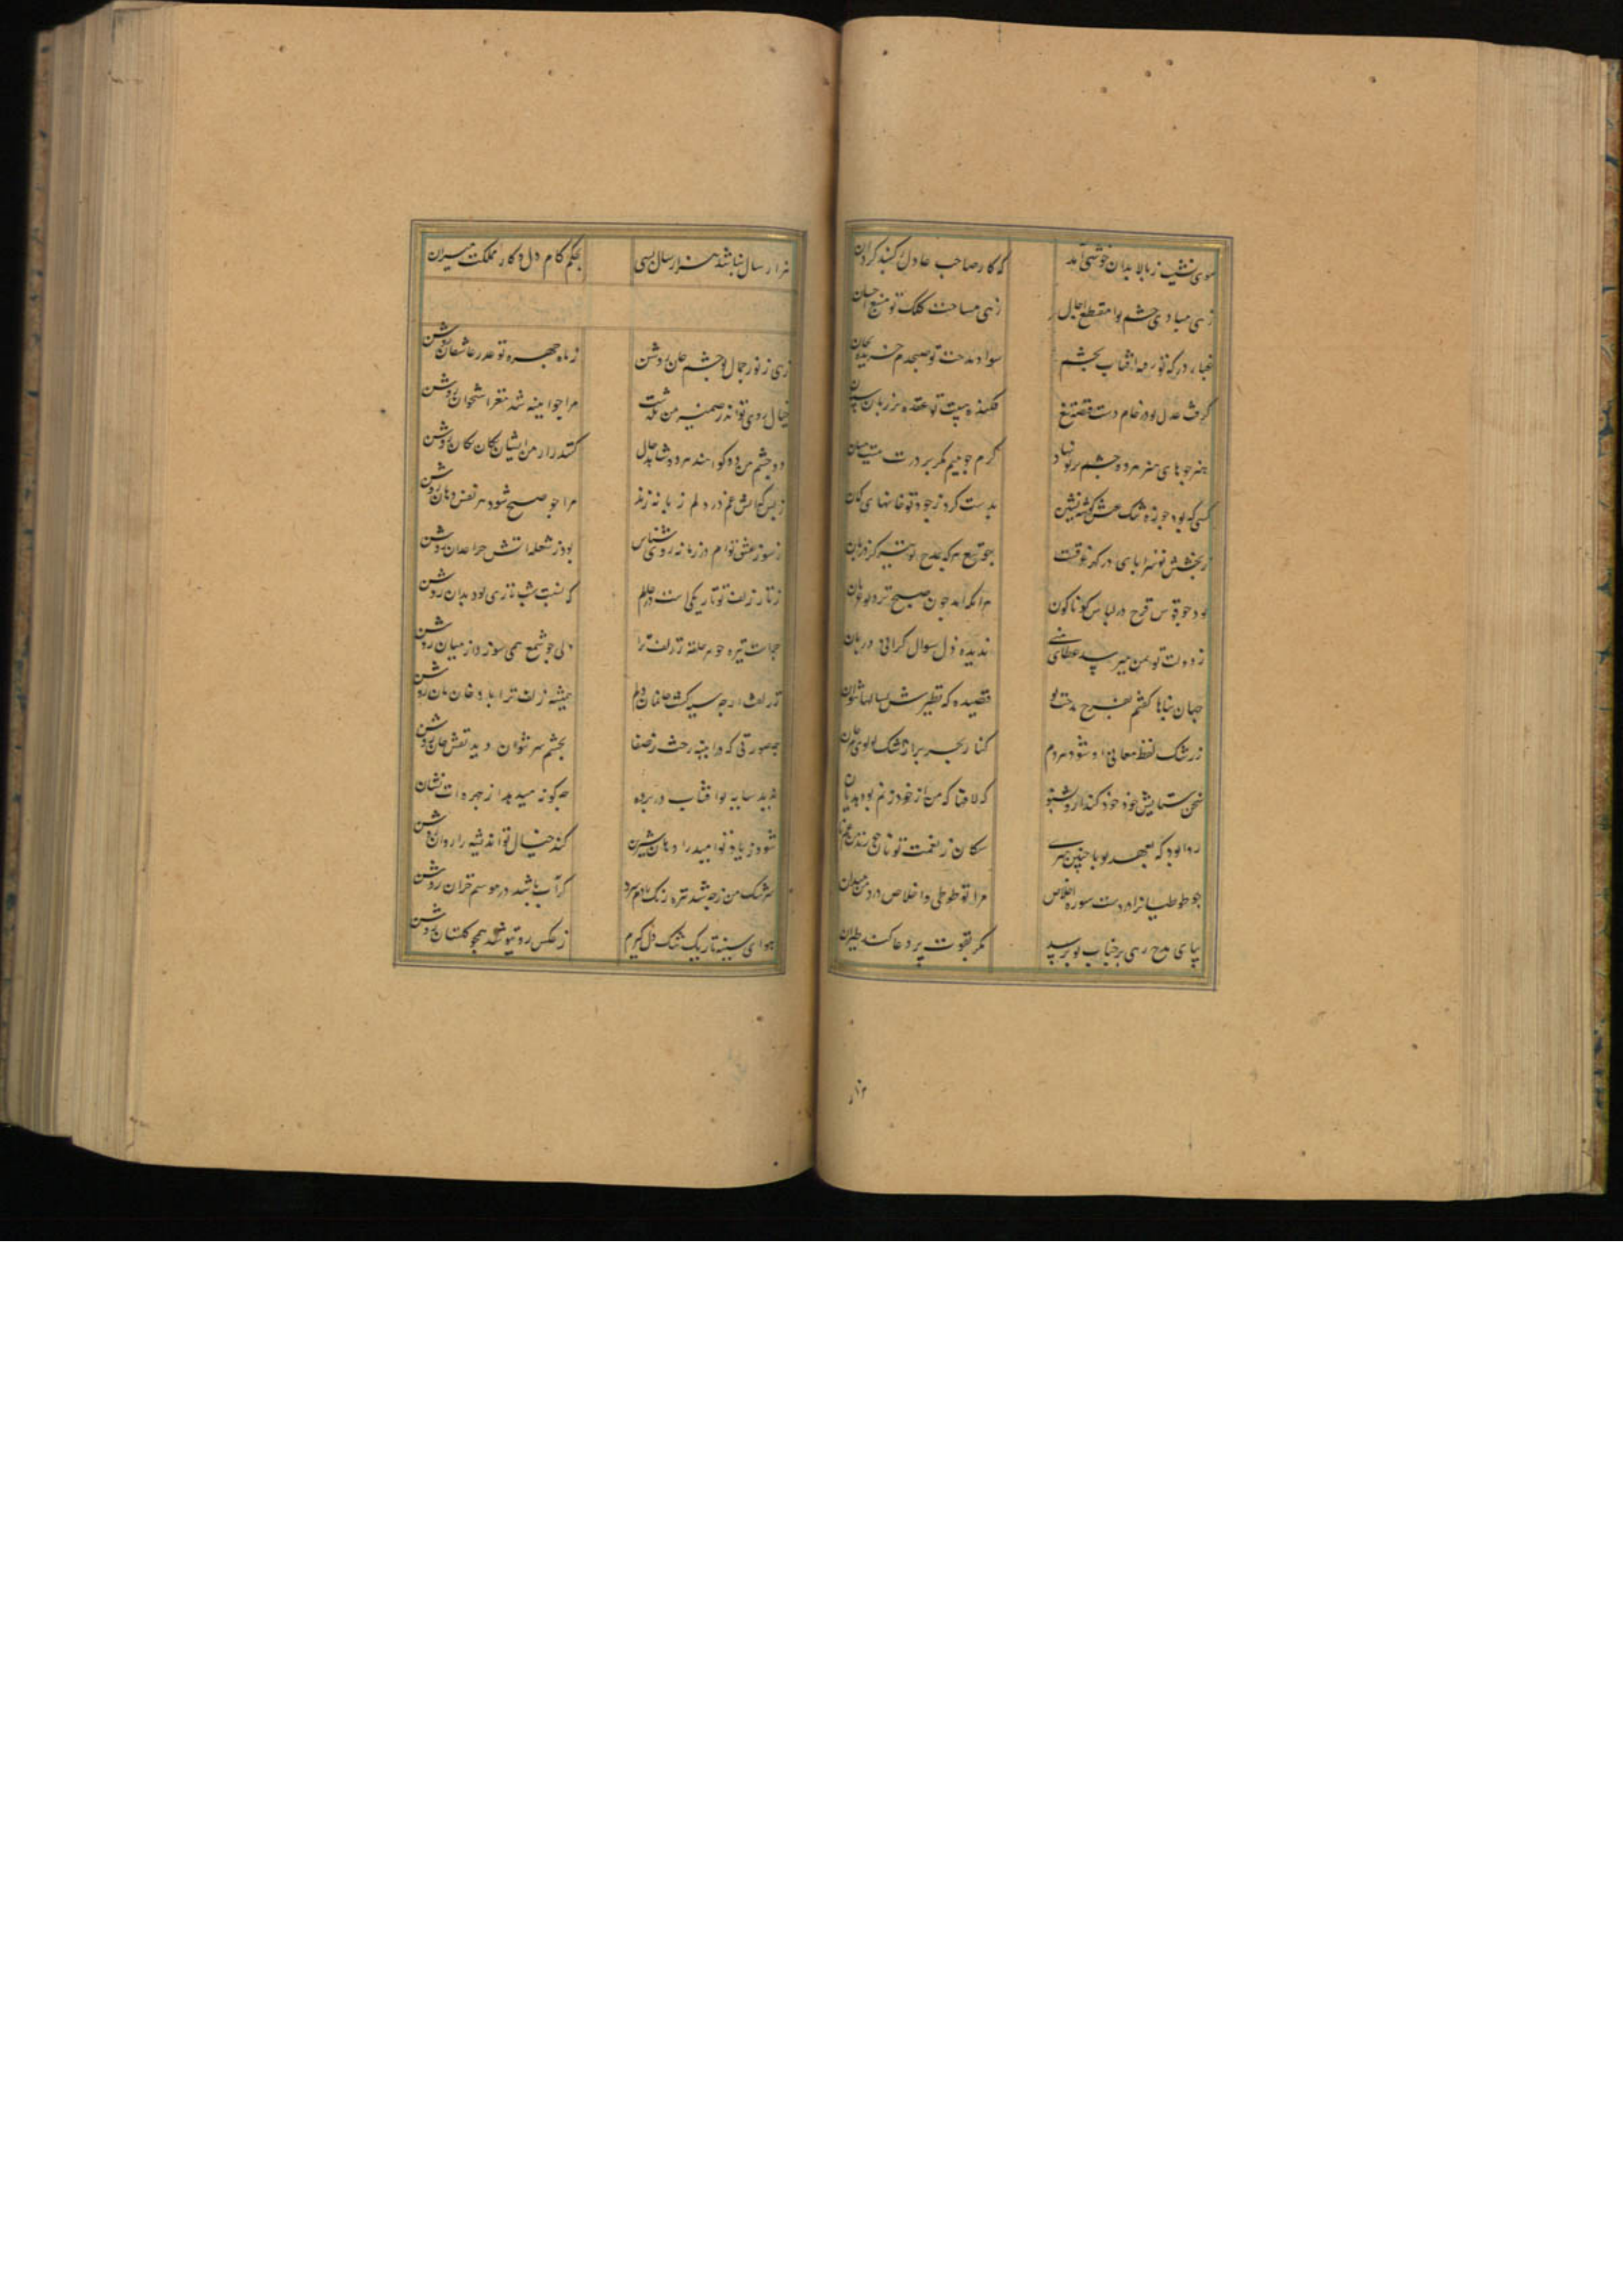 سوی نشیب ز بالا بدان خوشی آمد که کار صاحب عادل ز کنبد کردان
زهی مبادی خشم ترا مقطع اجال زهی مساحت کلک تو منبع احسان
غبار درکه تو سرمه افتاب بچشم سواد مدحت تو صبحدم خریده بجان
کرفت عدل تو در خام دست فتنه تیغ فکنده هیبت تو عقده بر زبان سنان
هنرجوهای هنر مرده چشم بر تو نهاد کرم جو نیم کمر بر درت ببست میان
کسی که بود جو زه خشک کوشه نشین بدست کرد ز جود تو خانهای کمان
ز بخشش تو سراپای در کهر غرقست جو تیغ هر که بمدح تو تیز کرد زبان
بود جو قوس قزح در لباس کوناکون هر انکه امد جون صبح بر تو عریان
ز دولت تو بمن میرسد عطای غنی ندیده ذل سوال کرانی دربان
جهان پناها کفتم بفرح مدحت تو قصیده که نظیرش بسالها نتوان
ز رشک لفظ معانی او شود هر دم کنار بحر پر از اشک لولوی مرجان
سخن ستایش خود خود کند از او بشنو که لافها که من از خود زنم بود هذیان
روا بود که بعهد تو با چنین هنری سکان ز نعمت تو نان خورند و من غم نان
جو طوطیانرا در دست سوره اخلاص مرا تو طوطی و اخلاص درد من میدان
بپای مدح رهی بر جناب تو نرسید مکر بقوت پر دعا کند طیران
هزار
هزار سال نباشد هزار سال بسی بحکم کام دل و کار مملکت میران
زهی ز نور جمال تو چشم جان روشن ز ماه چهره تو عذر عاشقان روشن
خیال روی تو اندر ضمیر من بکذشت مرا جو اینه شد مغز استخوان روشن
دو چشم من دو کواهند مرده شاهد حال کنند راز من ایشان یکان یکان روشن
ز بس که اتش غم در دلم زبانه زند مرا جو صبح شود هر نفس دهان روشن
ز سوز عشق توام در زمانه روی شناس بود ز شعله اتش چراغدان روشن
ز تار زلف تو تاریکی است در حالم که نسبت شب تازی بود بدان روشن
حیات تیره جو هر حلقه ز زلف ترا دلی جو شمع همی سوزد از میان روشن
ز زلفت ارچه سیه کشت خانمان دلم همیشه زلف ترا باد خان مان روشن
چه صورتی که در اینه رخت ز صفا بچشم سر بتوان دید نقش جان روشن
ندید سایه تو افتاب در پرده چکونه میدهد از چهره ات نشان
شود ز یاد تو امید را دهان شیرین کند خیال تو اندیشه را روان روشن
سرشک من ز چه شد تیره رنک با دم سرد کر اب باشد در موسم خزان روشن
هوای سینه تاریک تنک دل کیرم ز عکس روی تو شد همچو کلستان روشن